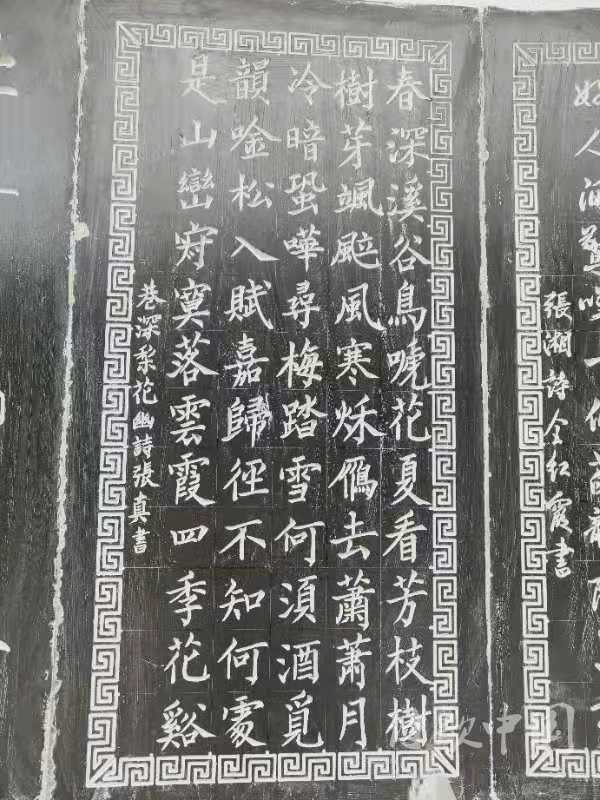 張湘詩全紅霞書
春深溪谷鳥唬花夏看芳枝樹
樹芽颯颭風寒秌鴈去蕭蕭月
冷暗蛩嘩尋梅踏雪何須酒覓
韻唫松入賦嘉歸徑不知何處
是山巒寂寞落雲霞四季花谿
巷深梨花幽詩張真書
中国